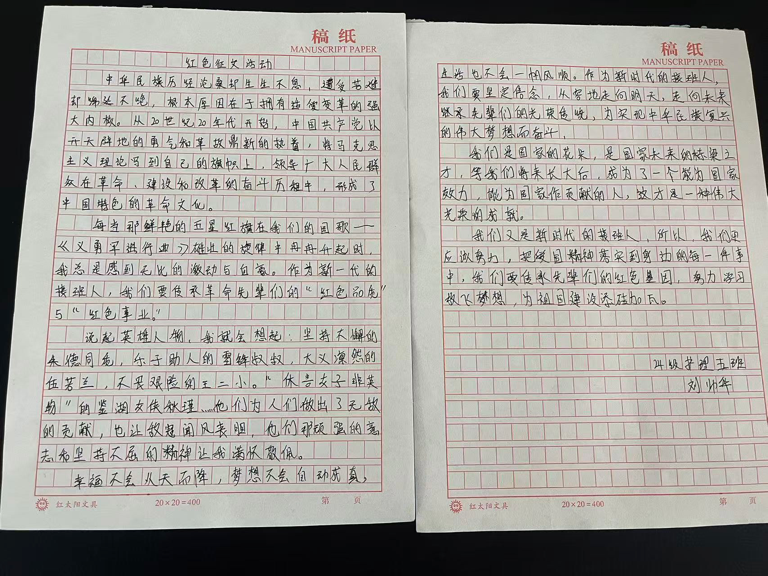 稿纸
MANUSCRIPT PAPER
红色征文活动
中华民族历经沧桑却生生不息，遭受苦难
却绵延不绝，根本原因在于拥有储使变革的强
大内核。从20世纪20年代开始，中国共产党以
开天辟地的勇气和革故鼎新的执着，将马克思
主义理论写到自己的旗帜上，领导广大人民群
众在革命、建设和改革的奋斗历程中，形成了
中国特色的革命文化。
每当那鲜艳的五星红旗在我们的国歌——
《义勇军进行曲》雄壮的旋律中冉冉升起时，
我总是感到无比的激动与自豪。作为新一代的
接班人，我们要传承革命先辈们的“红色品德”
与“红色事业”
说起英雄人物，我就会想起：坚持不懈的
朱德同志，乐于助人的雷锋叔叔，大义凛然的
任芳兰，不畏艰险的王二小。“休言女子非英
物”的鉴湖女侠秋瑾……他们为人们做出了无私
的贡献，也让敌想闻风丧胆，他们那顽强的意
志和坚持不屈的精神让我满怀敬佩。
幸福不会从天而降，梦想不会自动成真，
红太阳文具
20×20=400
第 页
稿纸
MANUSCRIPT PAPER
生活也不会一帆风顺。作为新时代的接班人，
我们要坚定信念，从实地走向明天，走向未来
继承先辈们的光荣传统，为实现中华民族复兴
的伟大梦想而奋斗。
我们是国家的花朵，是国家未来的栋梁之
才，等我们将来长大后，成为了一个能为国家
效力，能为国家作贡献的人，这才是一种伟大
光荣的
我们又是新时代的接班人，所以，我们更
应做努力，把爱国精神落实到身边的每一件事
中，我们要传承先辈们的红色基因，努力学习
放飞梦想，为祖国建设添砖加瓦。
24级护理五班
刘
红太阳文具
20×20=400
第 页